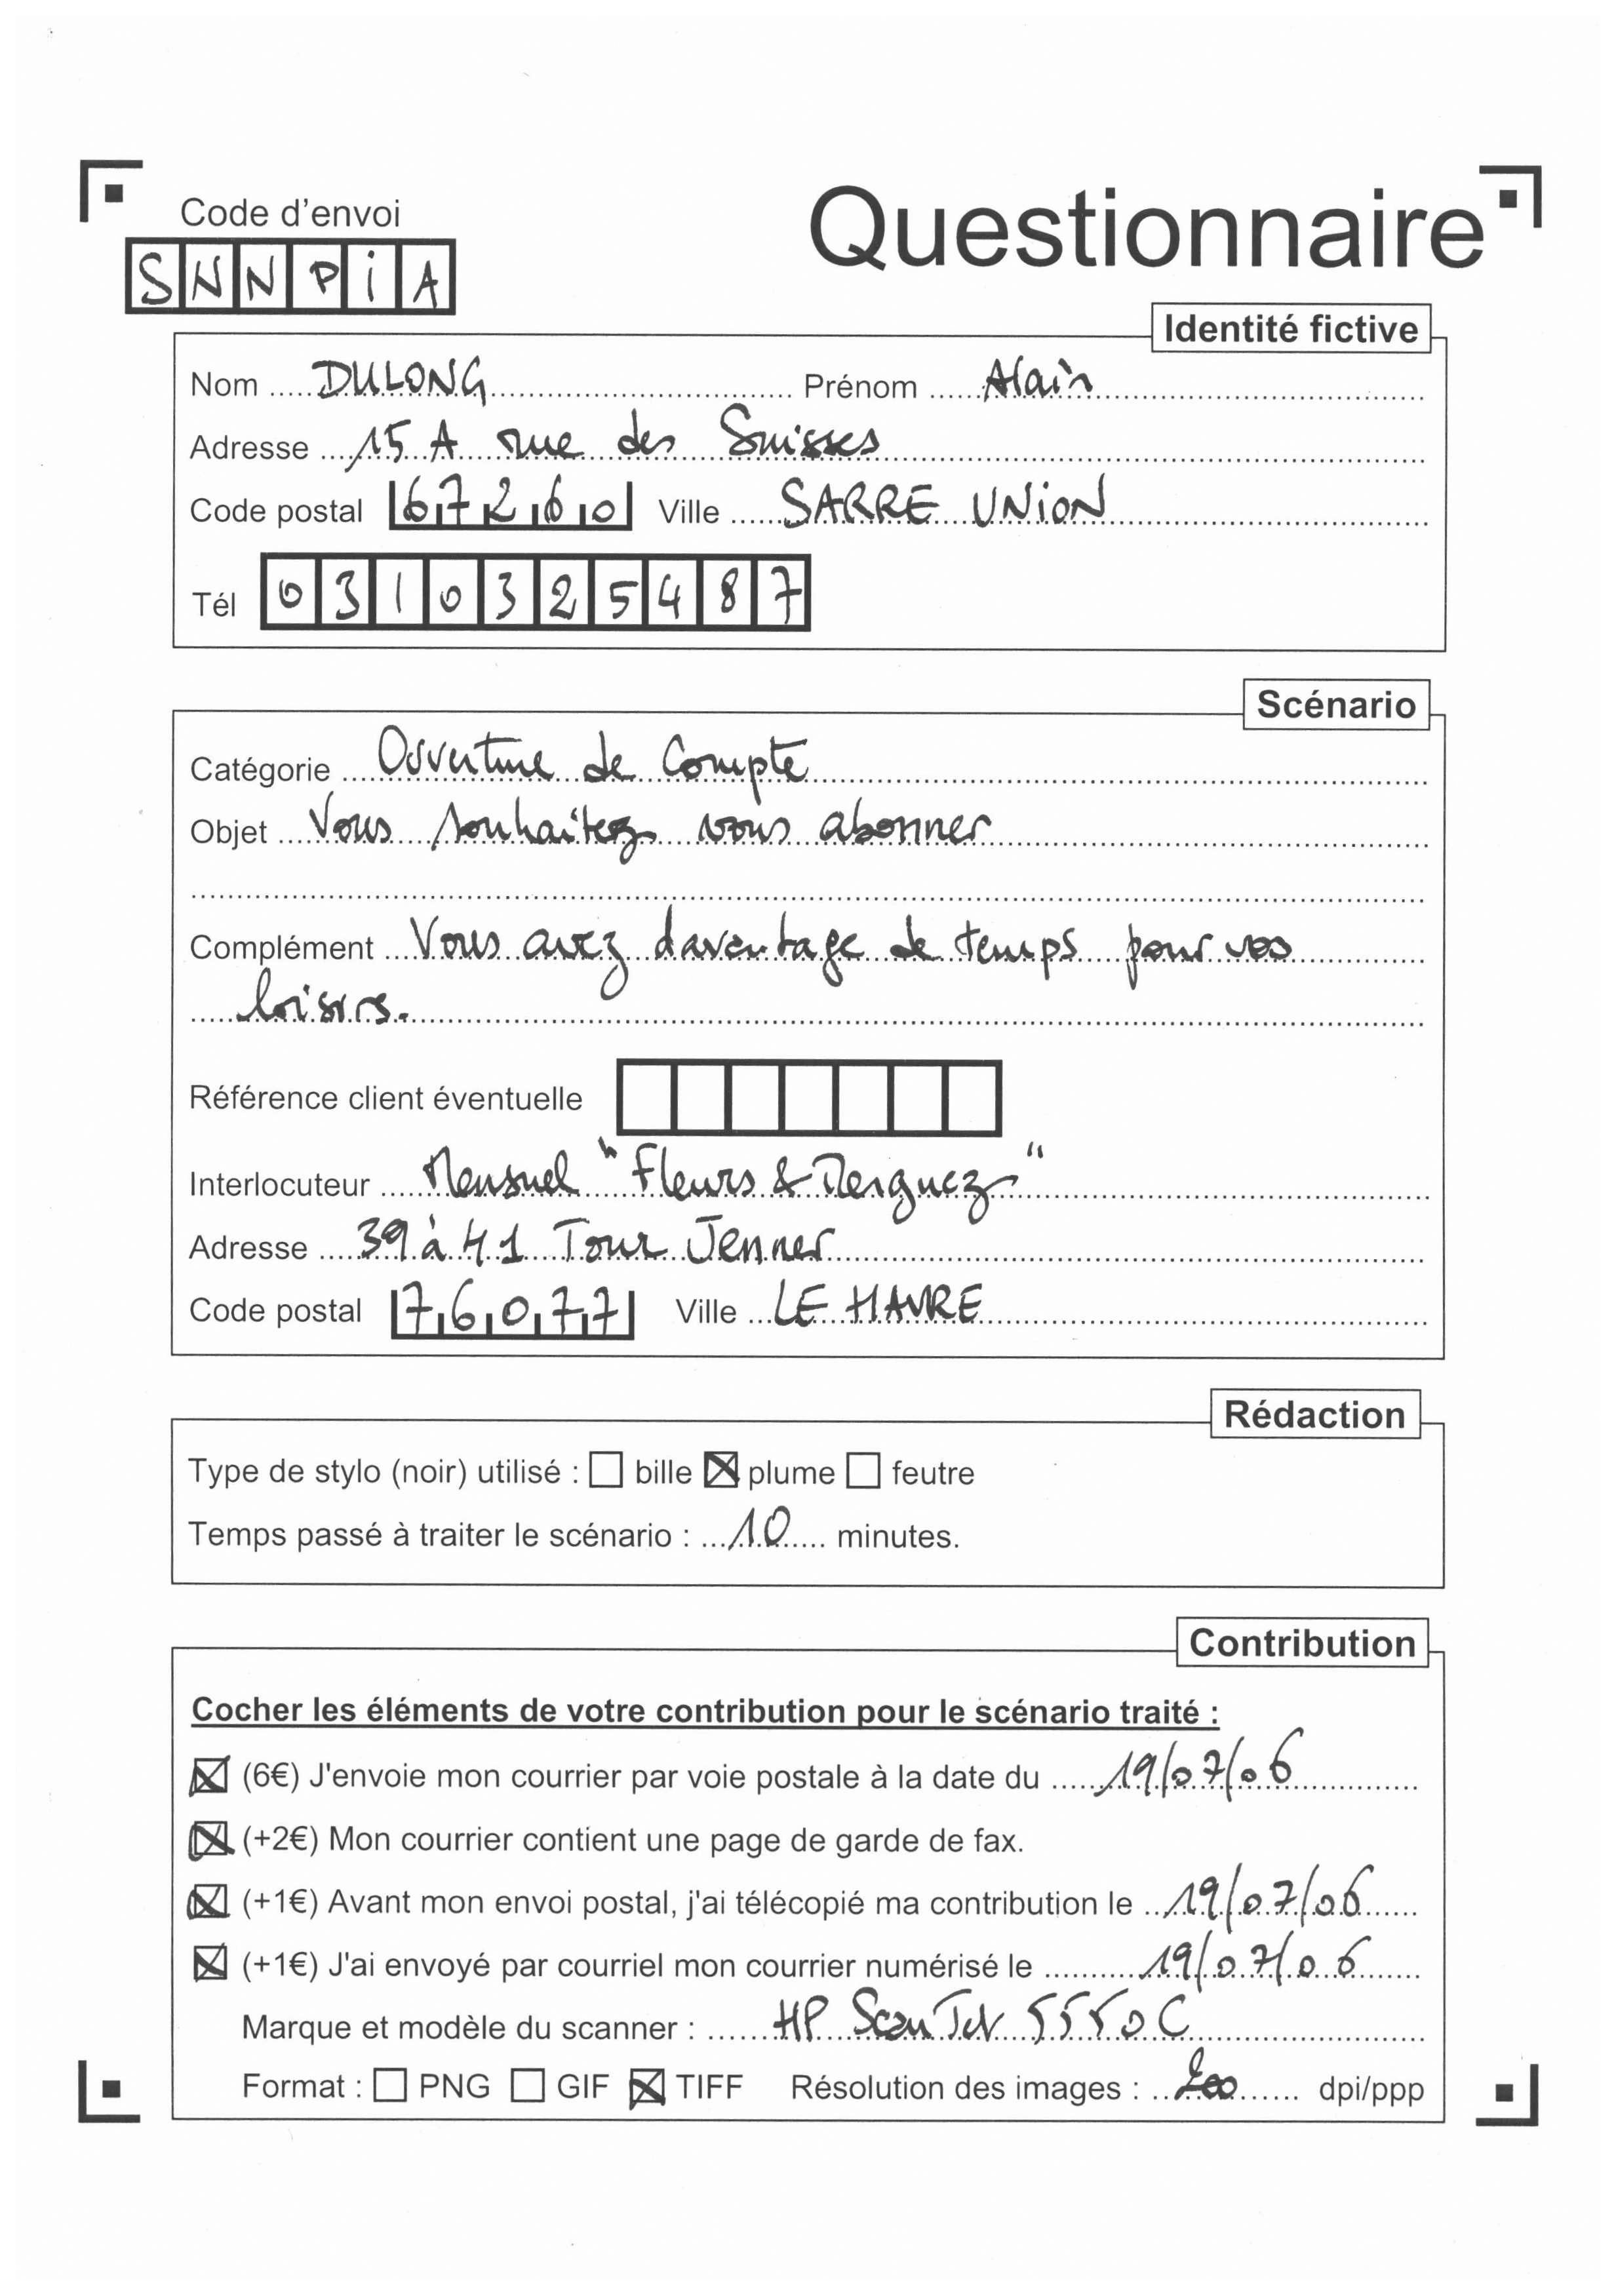 Code d'envoi
Questionnaire
SNNPiA
Identité fictive
Nom ..... DULONG ..... Prénom ..... Alain
Adresse ..... 15 A rue des Suisses
Code postal 67260 Ville ..... SARRE UNiON
Tél 0310325487
Scénario
Catégorie ..... Ouverture de Compte
Objet ..... Vous souhaitez vous abonner
Complément ..... Vous avez davantage de temps pour vos
loisirs.
Référence client éventuelle
Interlocuteur ..... Mensuel "Fleurs & Merguez"
Adresse ..... 39 à 41 Tour Jenner
Code postal 76077 Ville ..... LE HAVRE
Rédaction
Type de stylo (noir) utilisé : ☐ bille ☒ plume ☐ feutre
Temps passé à traiter le scénario : ..... 10 ..... minutes.
Contribution
Cocher les éléments de votre contribution pour le scénario traité :
☒ (6€) J'envoie mon courrier par voie postale à la date du ..... 19/07/06
☒ (+2€) Mon courrier contient une page de garde de fax.
☒ (+1€) Avant mon envoi postal, j'ai télécopié ma contribution le ..... 19/07/06
☒ (+1€) J'ai envoyé par courriel mon courrier numérisé le ..... 19/07/06
Marque et modèle du scanner : ..... HP ScanJet 5550C
Format : ☐ PNG ☐ GIF ☒ TIFF Résolution des images : ..... 200 ..... dpi/ppp